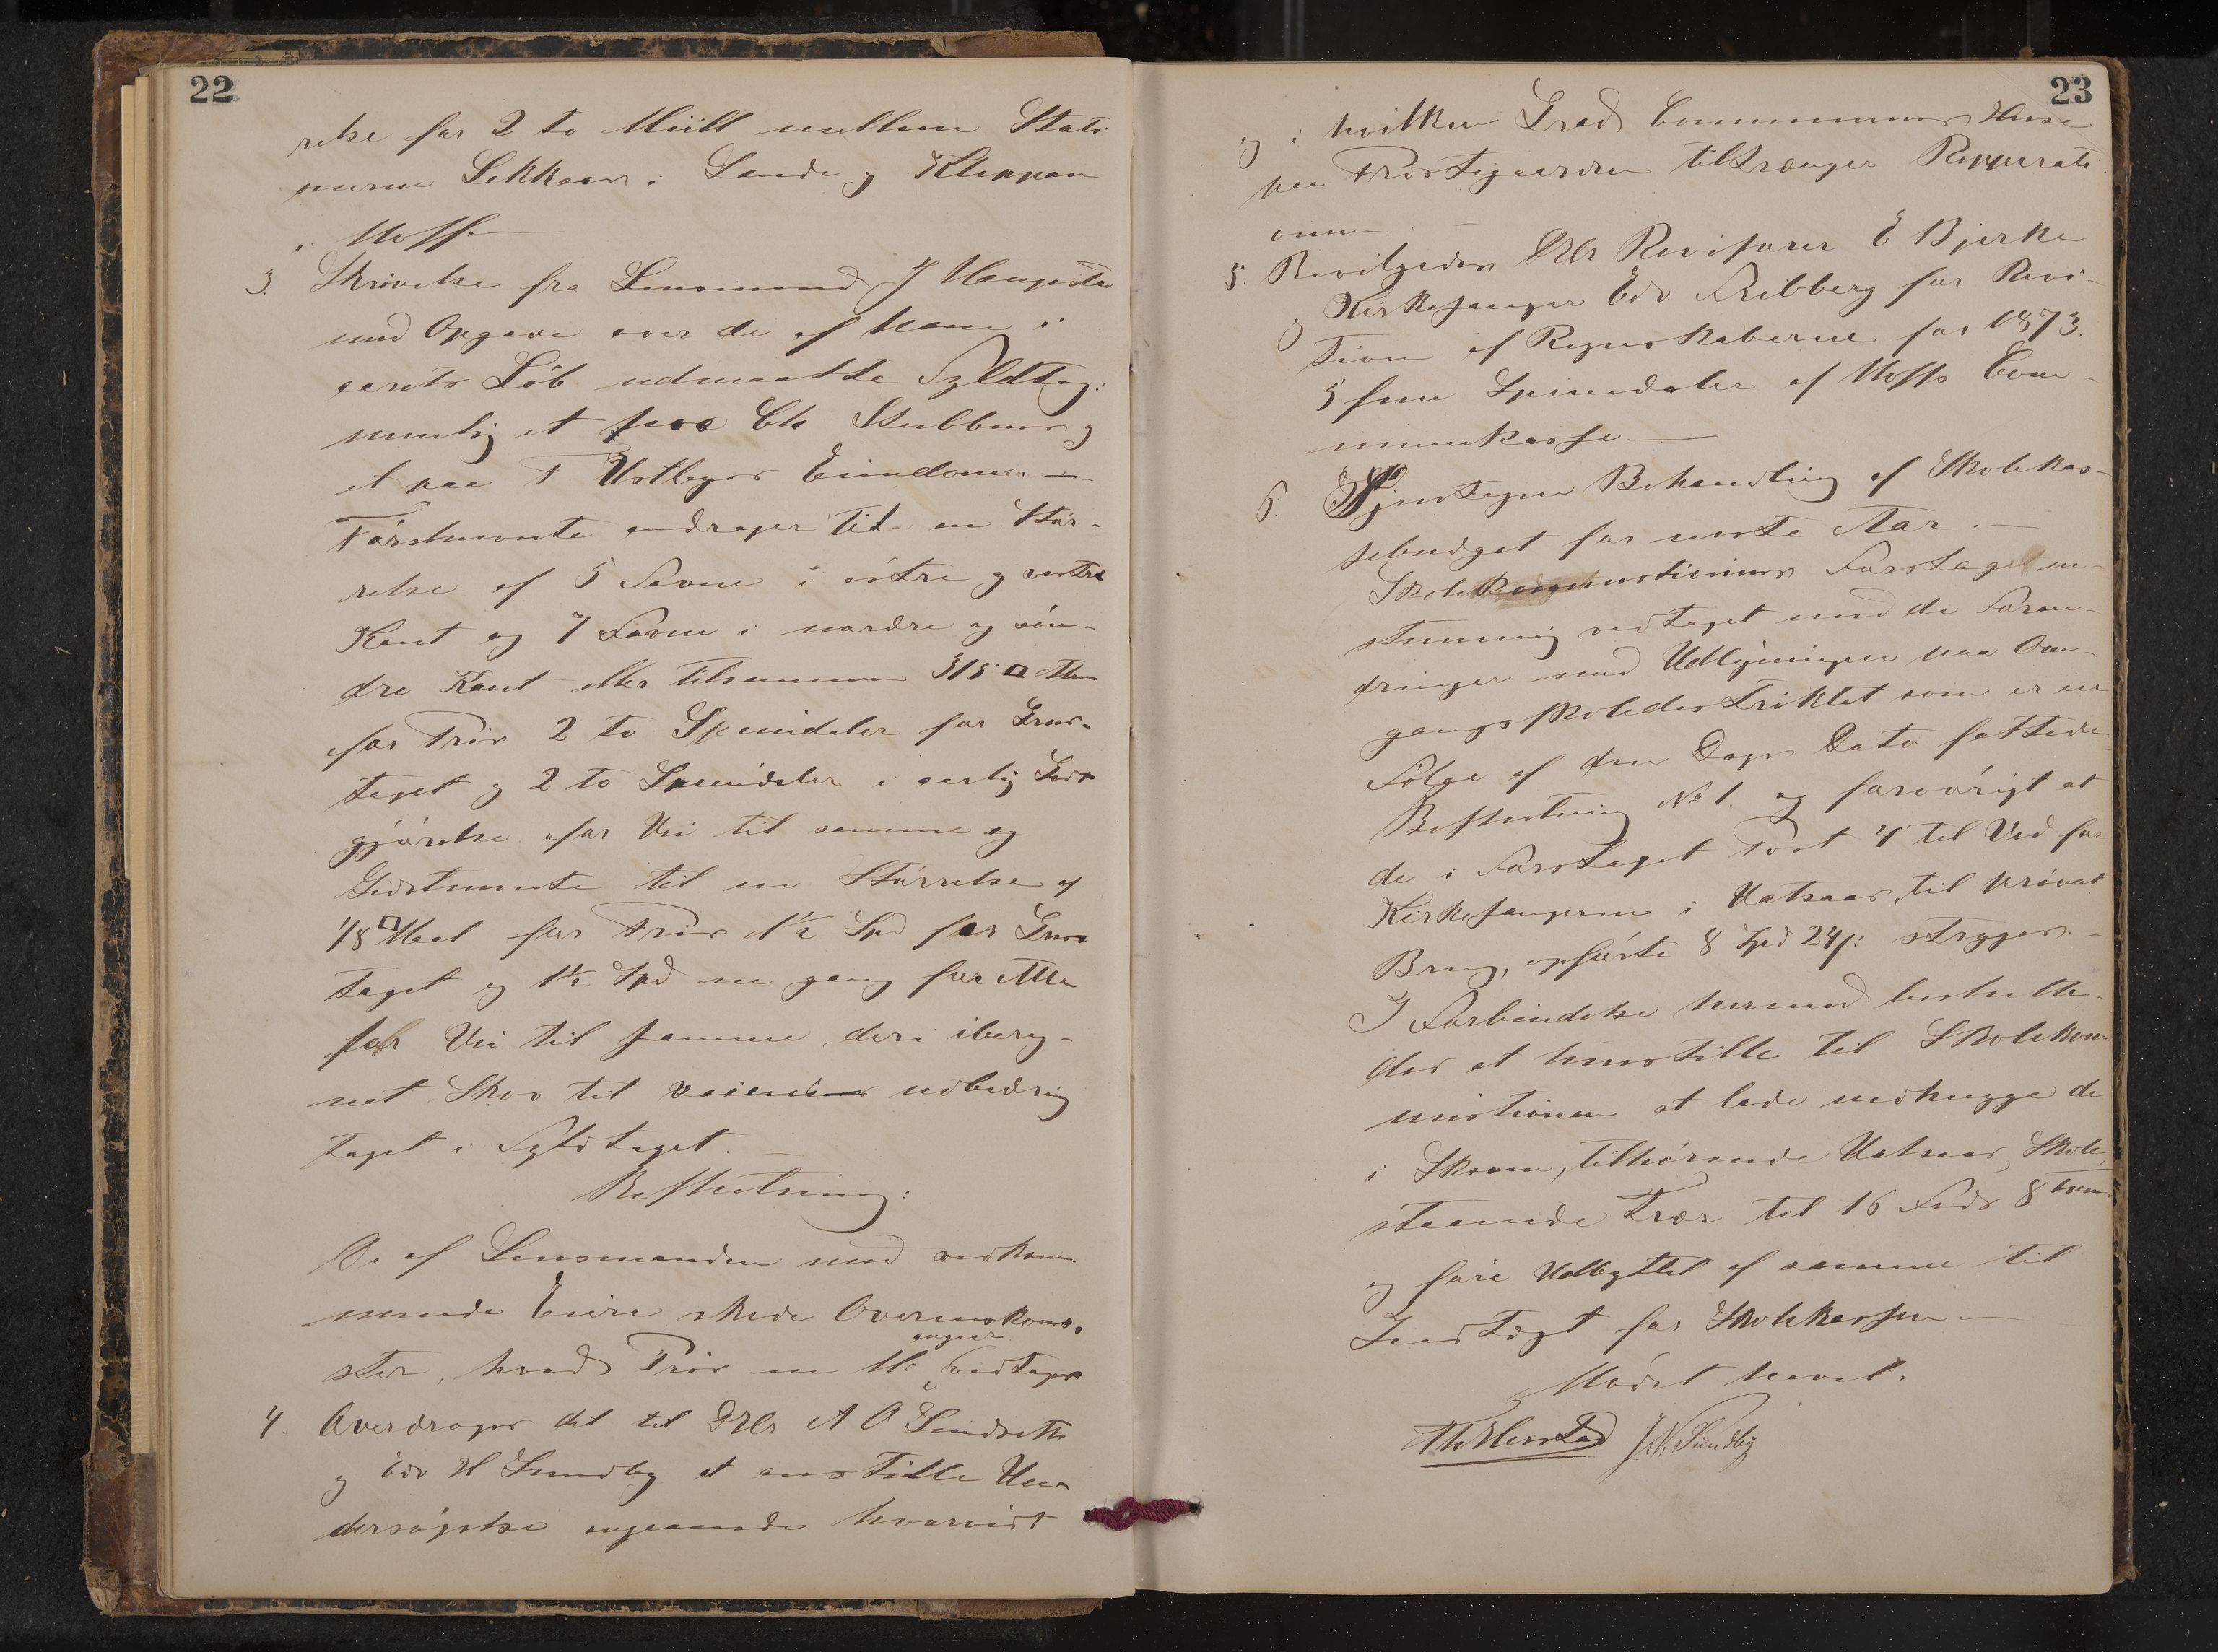 22
relse for 2 to Miil mellem Stati
onerne Sekkaas i Lande og Kleppan
i Hoff.
3. Skrivelse fra Lensmand J Haugestad
med Opgave over de af ham i
aarets Løb udmaatte Fyldtag:
nemlig et paa Chr Stubbens og
et paa T Ustbyes Eiendom.
Førstnevnte andrager til en Stør-
relse af 5 Favne i østre og vestre
Kant og 7 Favne i nordre og søn-
dre Kant eller tilsammen 315 □ Alen
for Priis 2 to Speciedaler for Grus-
taget og 2 to Speciedaler i aarlig Godt
gjørelse for Vei til samme og
Sidstnevnte til en Størrelse af
1/8 □ Maal for Priis 1½ Spd for Grus
taget og 1½ Spd en gang for Alle
for Vei til samme, deri ibereg-
net Skov til veiens udbedring
taget i Fyldtaget.
Beslutning:
De af Lensmanden med vedkom
mende Eiere skede Overenskom-
ster, hvad Priis angaar vedtages
4. Overdroges det til DHr A O Lindseth
og Edv H Sundby at anstille Un-
dersøgelse angaaende hvorvidt
23
og i hvilken Grad Communens Huse
paa Præstegaarden tiltrænger Repperati
onen.
5. Bevilgedes DHr Revisorer E Bjerke
og Kirkesanger Edv Fribberg for Revi-
tion af Regnskaberne for 1873.
5 fem Speciedaler af Hoffs Com-
munekasse.
6. Gjentagen Behandling af Skolekas-
sebudget for neste Aar.
Skolekommistionens Forslag en-
stemmig vedtaget med de Foran-
dringer med Udligningen paa Om-
gangsskoledistriktet som er en
Følge af den Dags Dato fattede
Beslutning No 1. og forøvrigt at
de i Forslaget Post 4 til Ved for
Kirkesangeren i Vatsaas, til privat
Brug, opførte 8 Spd 24 s: stryges.
I Forbindelse hermed beslutte-
des at henstille til Skolekom
mistionen at lade nedhugge de
i Skoven, tilhørende Vatsaas Skole,
staaende Trær til 16 Fods 8 Tom
og føre Udbyttet af samme til
Indtægt for Skolekassen.
Mødet hævet.
J. N. Sundby